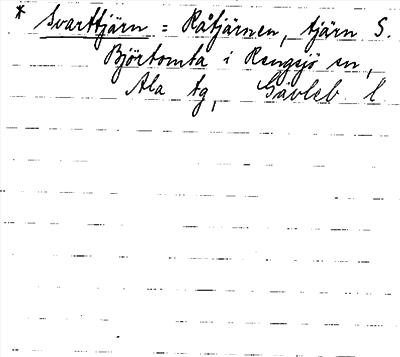 * Svarttjärn = Råtjärnen, tjärn S.
Björtomta i Rengsjö sn,
Ala tg, Gävleb. l.